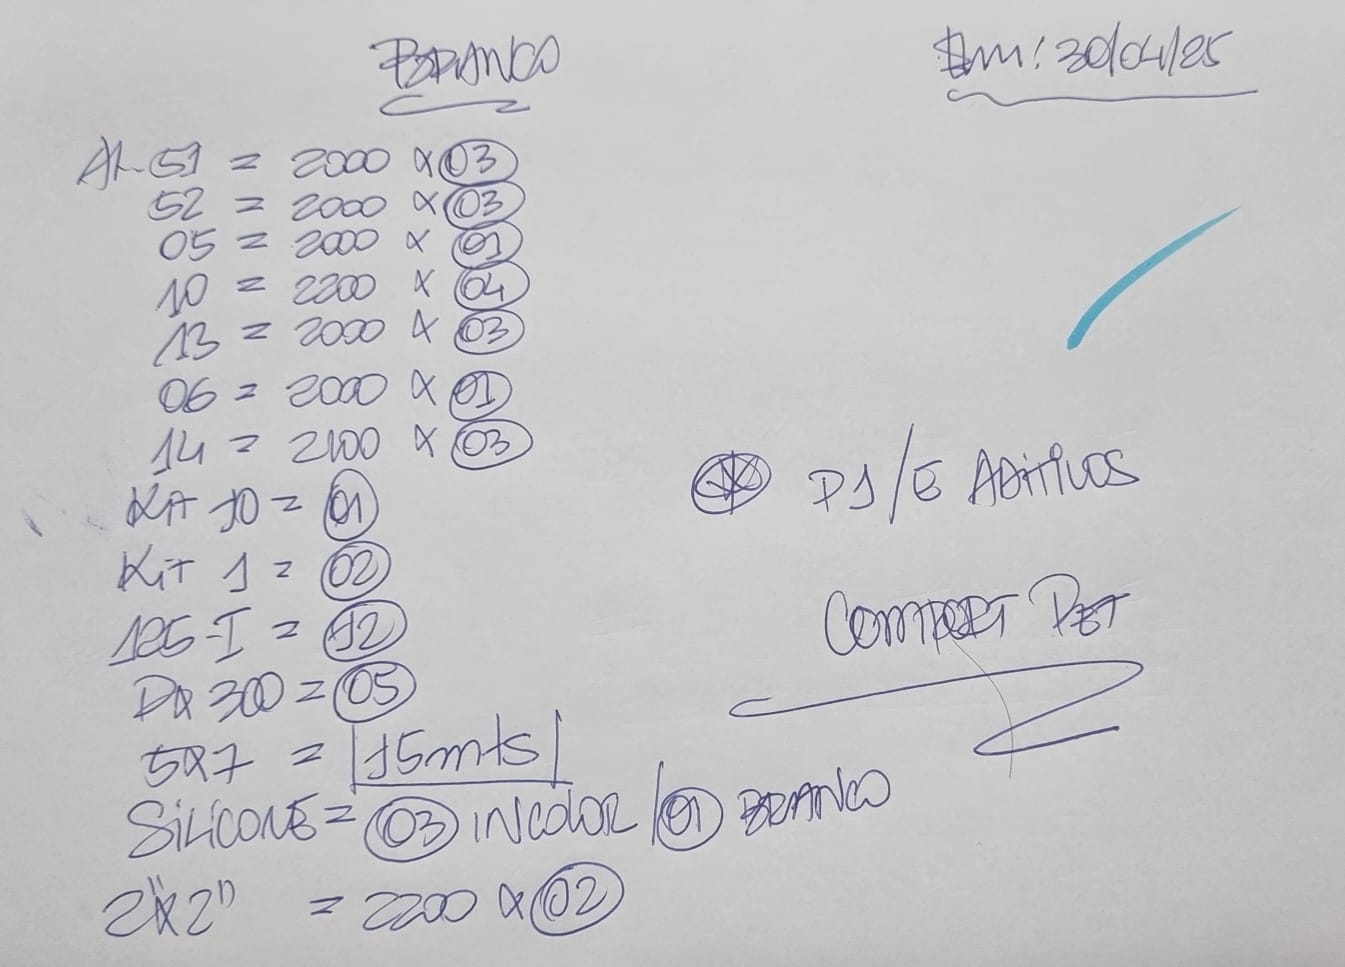 BRANCO
Em: 30/04/25
AL-51 = 2000 x 03
52 = 2000 x 03
05 = 2000 x 01
10 = 2200 x 04
13 = 2000 x 03
06 = 2000 x 01
14 = 2100 x 03
Kit 10 = 01
Kit 1 = 02
125-I = 12
PX 300 = 05
5x7 = 15mts
SiLiCONE = 03 INCOLOR / 01 BRANCO
2"x2" = 2200 x 02
P1/E ADITIVOS
COMFORT PET